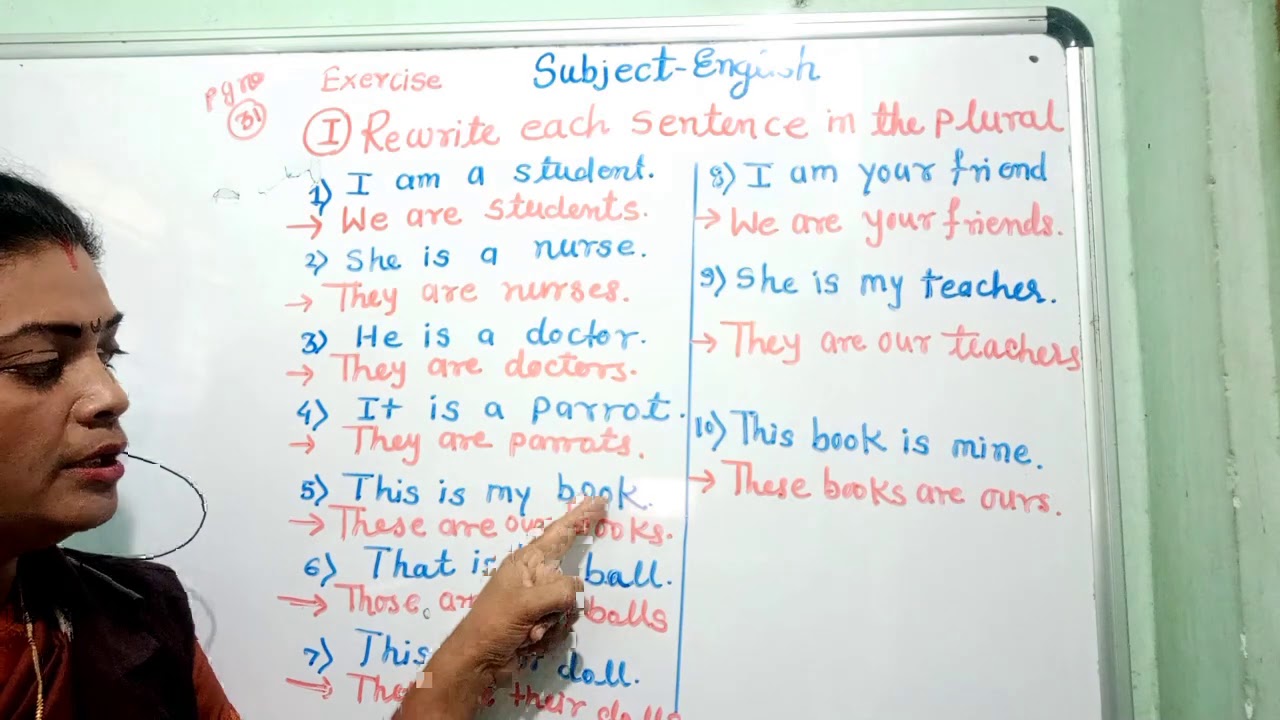 pg no
31
Exercise
Subject-English
I Rewrite each sentence in the plural
1) I am a student.
→ We are students.
2) She is a nurse.
→ They are nurses.
3) He is a doctor.
→ They are doctors.
4) It is a parrot.
→ They are parrats.
5) This is my book.
→ These are our books.
6) That is ball.
→ Those are balls
7) This doll.
→ their dolls
8) I am your friend
→ We are your friends.
9) She is my teacher.
→ They are our teachers
10) This book is mine.
→ These books are ours.